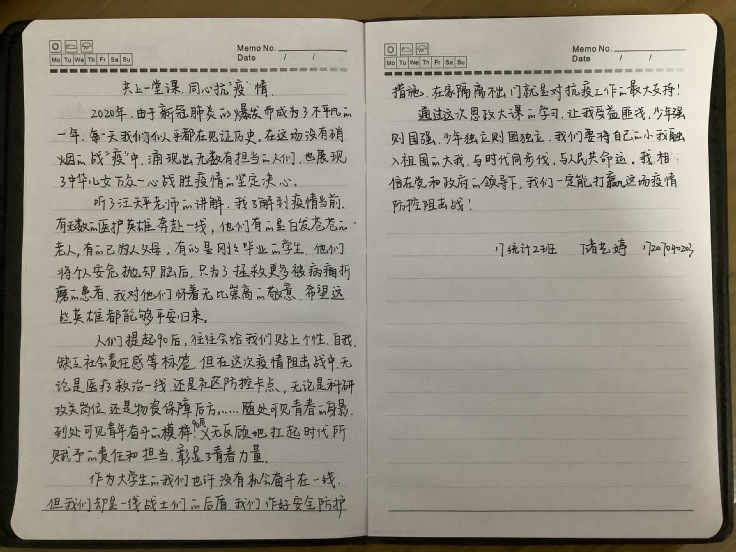 Memo No.
Mo Tu We Th Fr Sa Su
Date / /
共上一堂课,同心抗"疫"情.
2020年,由于新冠肺炎的爆发而成为了不平凡的
一年,每一天我们似乎都在见证历史。在这场没有硝
烟的战"疫"中,涌现出无数有担当的人们,也展现
了中华儿女万众一心战胜疫情的坚定决心。
听了汪天平老师的讲解,我了解到疫情当前,
有无数的医护英雄奔赴一线,他们有的是白发苍苍的
老人,有的已为人父母,有的是刚刚毕业的学生,他们
将个人安危抛却脑后,只为了拯救更多被病痛折
磨的患者,我对他们怀着无比崇高的敬意,希望这
些英雄都能够平安归来。
人们提起90后,往往会给我们贴上个性、自我、
缺乏社会责任感等标签,但在这次疫情阻击战中,无
论是医疗救治一线,还是社区防控卡点,无论是科研
攻关岗位,还是物资保障后方……随处可见青春的身影,
到处可见青年奋斗的模样,90后义无反顾地扛起时代所
赋予的责任和担当,彰显了青春力量。
作为大学生的我们也许没有机会奋斗在一线,
但我们却是一线战士们的后盾,我们作好安全防护
Memo No.
Mo Tu We Th Fr Sa Su
Date / /
措施、在家隔离不出门就是对抗疫工作的最大支持!
通过这次思政大课的学习,让我受益匪浅,少年强
则国强,少年独立则国独立,我们要将自己的小我融
入祖国的大我,与时代同步伐,与人民共命运。我相
信在党和政府的领导下,我们一定能打赢这场疫情
防控阻击战!
17统计2班 储艺婷 17207040203